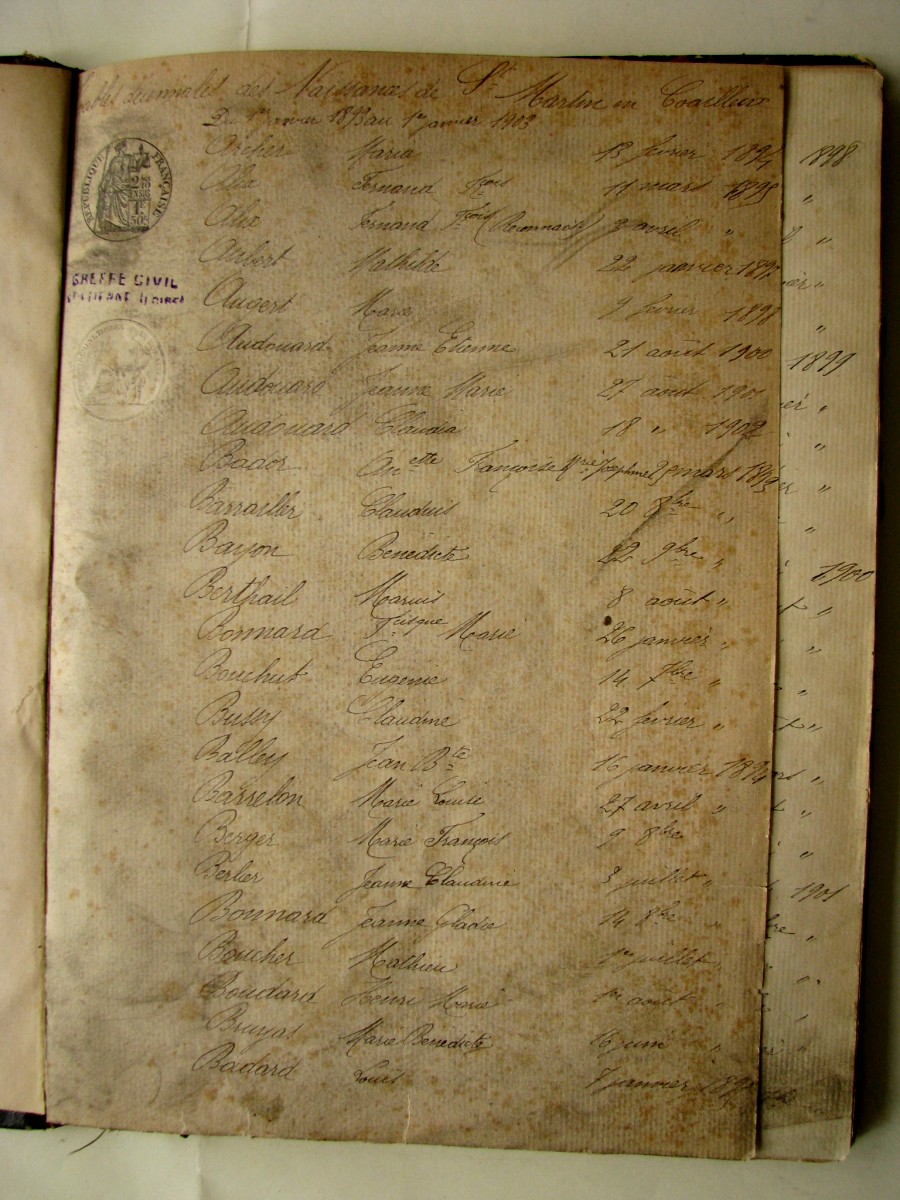 Tables décennales des Naissances de St Martin en Coailleux
Du 1er janvier 1893 au 1er janvier 1903
RÉPUBLIQUE FRANÇAISE
GREFFE CIVIL
Archer Maria 13 février 1894
Alix Fernand Fçois 11 mars 1895
Alix Fernand Fçois (Reconnais) 3 avril "
Aubert Mathilde 22 janvier 1897
Auvert Marie 9 février 1898
Audouard Jeanne Etienne 21 août 1900
Audouard Jeanne Marie 27 août 1901
Audouard Claudia 18 " 1902
Bador Françoise Josephine mars 1893
Barrailler Claudius 20 8bre "
Bayon Bénédicte 22 9bre "
Berthail Marius 8 août "
Bonnard Fcisque Marie 26 janvier "
Bouchut Eugénie 14 7bre "
Bussy Claudine 22 février "
Balley Jean Bte 16 janvier 1894
Barrelon Marie Louise 27 avril "
Berger Marie François 9 8bre
Berlier Jeanne Claudine 3 juillet "
Bonnard Jeanne 14 8bre "
Boucher Mathieu 1er juillet "
Boudard Henri Marie 1er août "
Bruyas Marie Bénédicte 16 juin "
Badard Louis 7 janvier
1898
"
"
"
"
1899
"
"
"
"
1900
"
"
"
"
"
"
"
1901
"
"
"
"